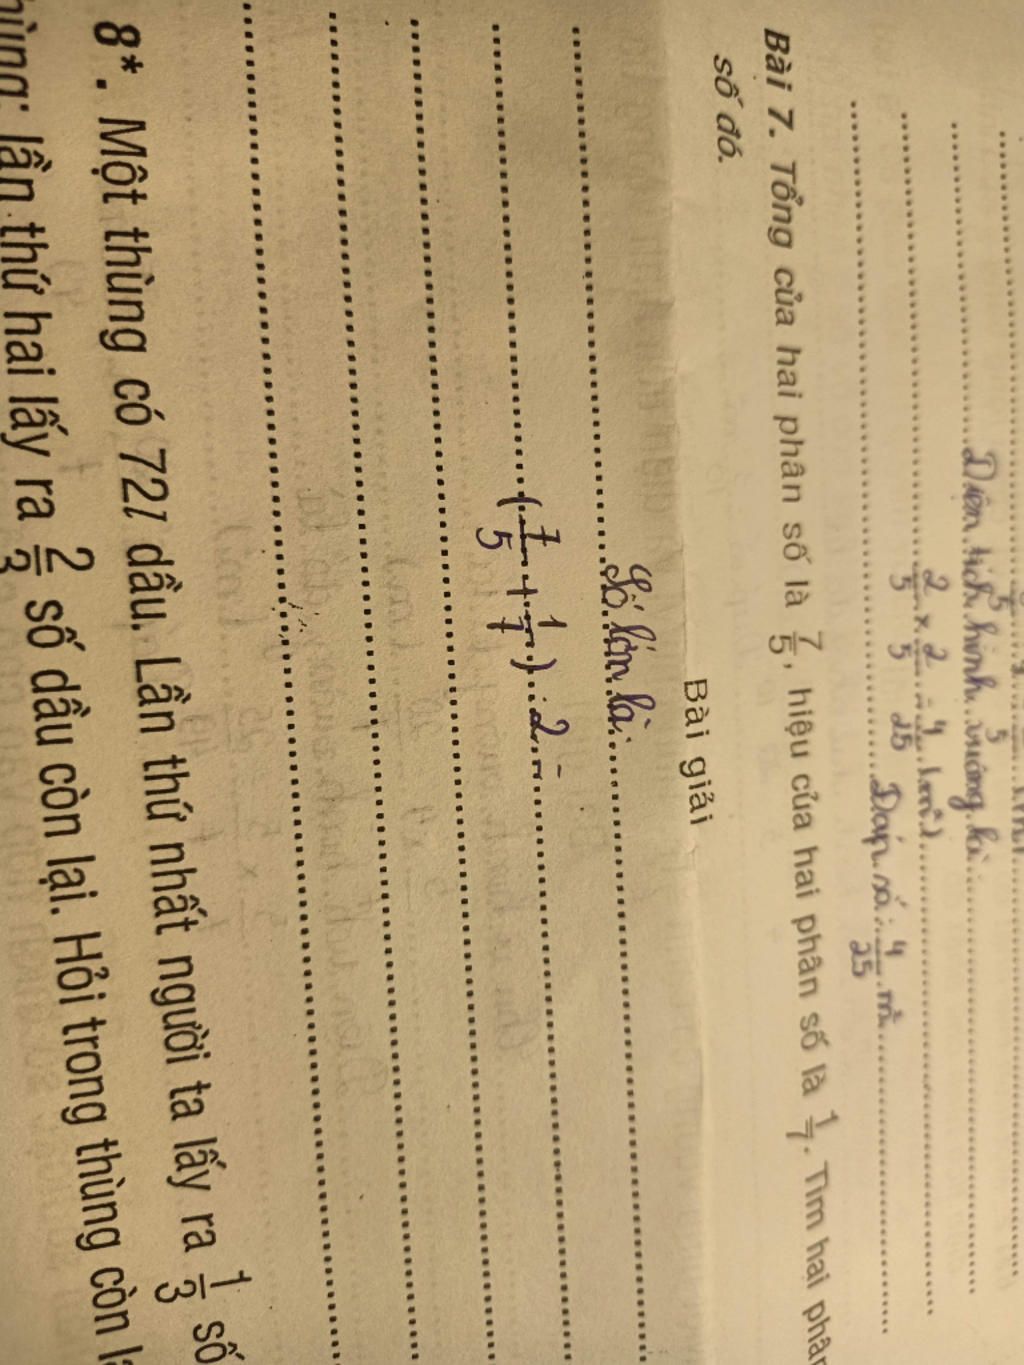 Diện tích hình vuông là:
2/5 x 2/5 = 4/25 (m²)
Đáp số: 4/25 m²
Bài 7. Tổng của hai phân số là 7/5, hiệu của hai phân số là 1/7. Tìm hai phân
số đó.
Bài giải
Số lớn là:
(7/5 + 1/7) : 2 =
8*. Một thùng có 72l dầu. Lần thứ nhất người ta lấy ra 1/3 số
lần thứ hai lấy ra 2/3 số dầu còn lại. Hỏi trong thùng còn